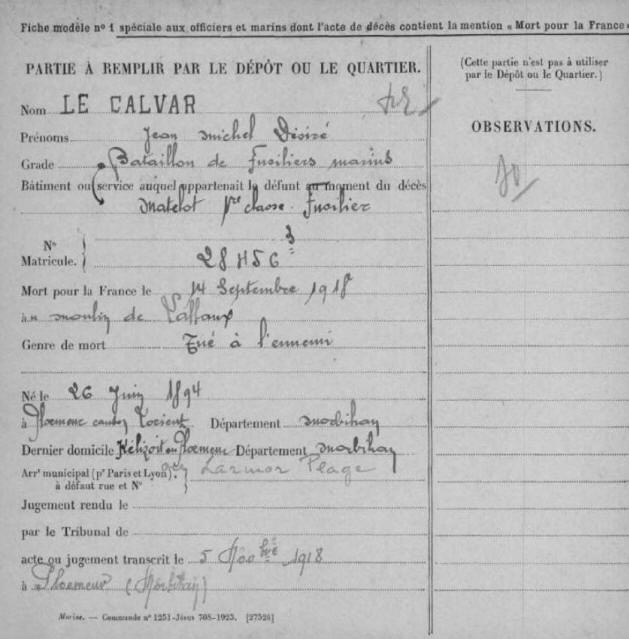 Fiche modèle n° 1 spéciale aux officiers et marins dont l'acte de décès contient la mention « Mort pour la France »
PARTIE À REMPLIR PAR LE DÉPÔT OU LE QUARTIER.
(Cette partie n'est pas à utiliser
par le Dépôt ou le Quartier.)
OBSERVATIONS.
Nom LE CALVAR
Prénoms Jean Michel Désiré
Grade Bataillon de Fusiliers marins
Bâtiment ou service auquel appartenait le défunt au moment du décès
Matelot 1re classe Fusilier
N°
Matricule. 28456 3
Mort pour la France le 14 Septembre 1918
à u moulin de Laffaux
Genre de mort Tué à l'ennemi
Né le 26 Juin 1894
à Ploemeur canton Lorient Département Morbihan
Dernier domicile en Ploemeur Département Morbihan
Arrt municipal (pr Paris et Lyon). Larmor Plage
à défaut rue et N°
Jugement rendu le
par le Tribunal de
acte ou jugement transcrit le 5 Novbre 1918
à Ploemeur (Morbihan)
Marine. — Commande n° 1251-Jésus 708-1925. [27524]